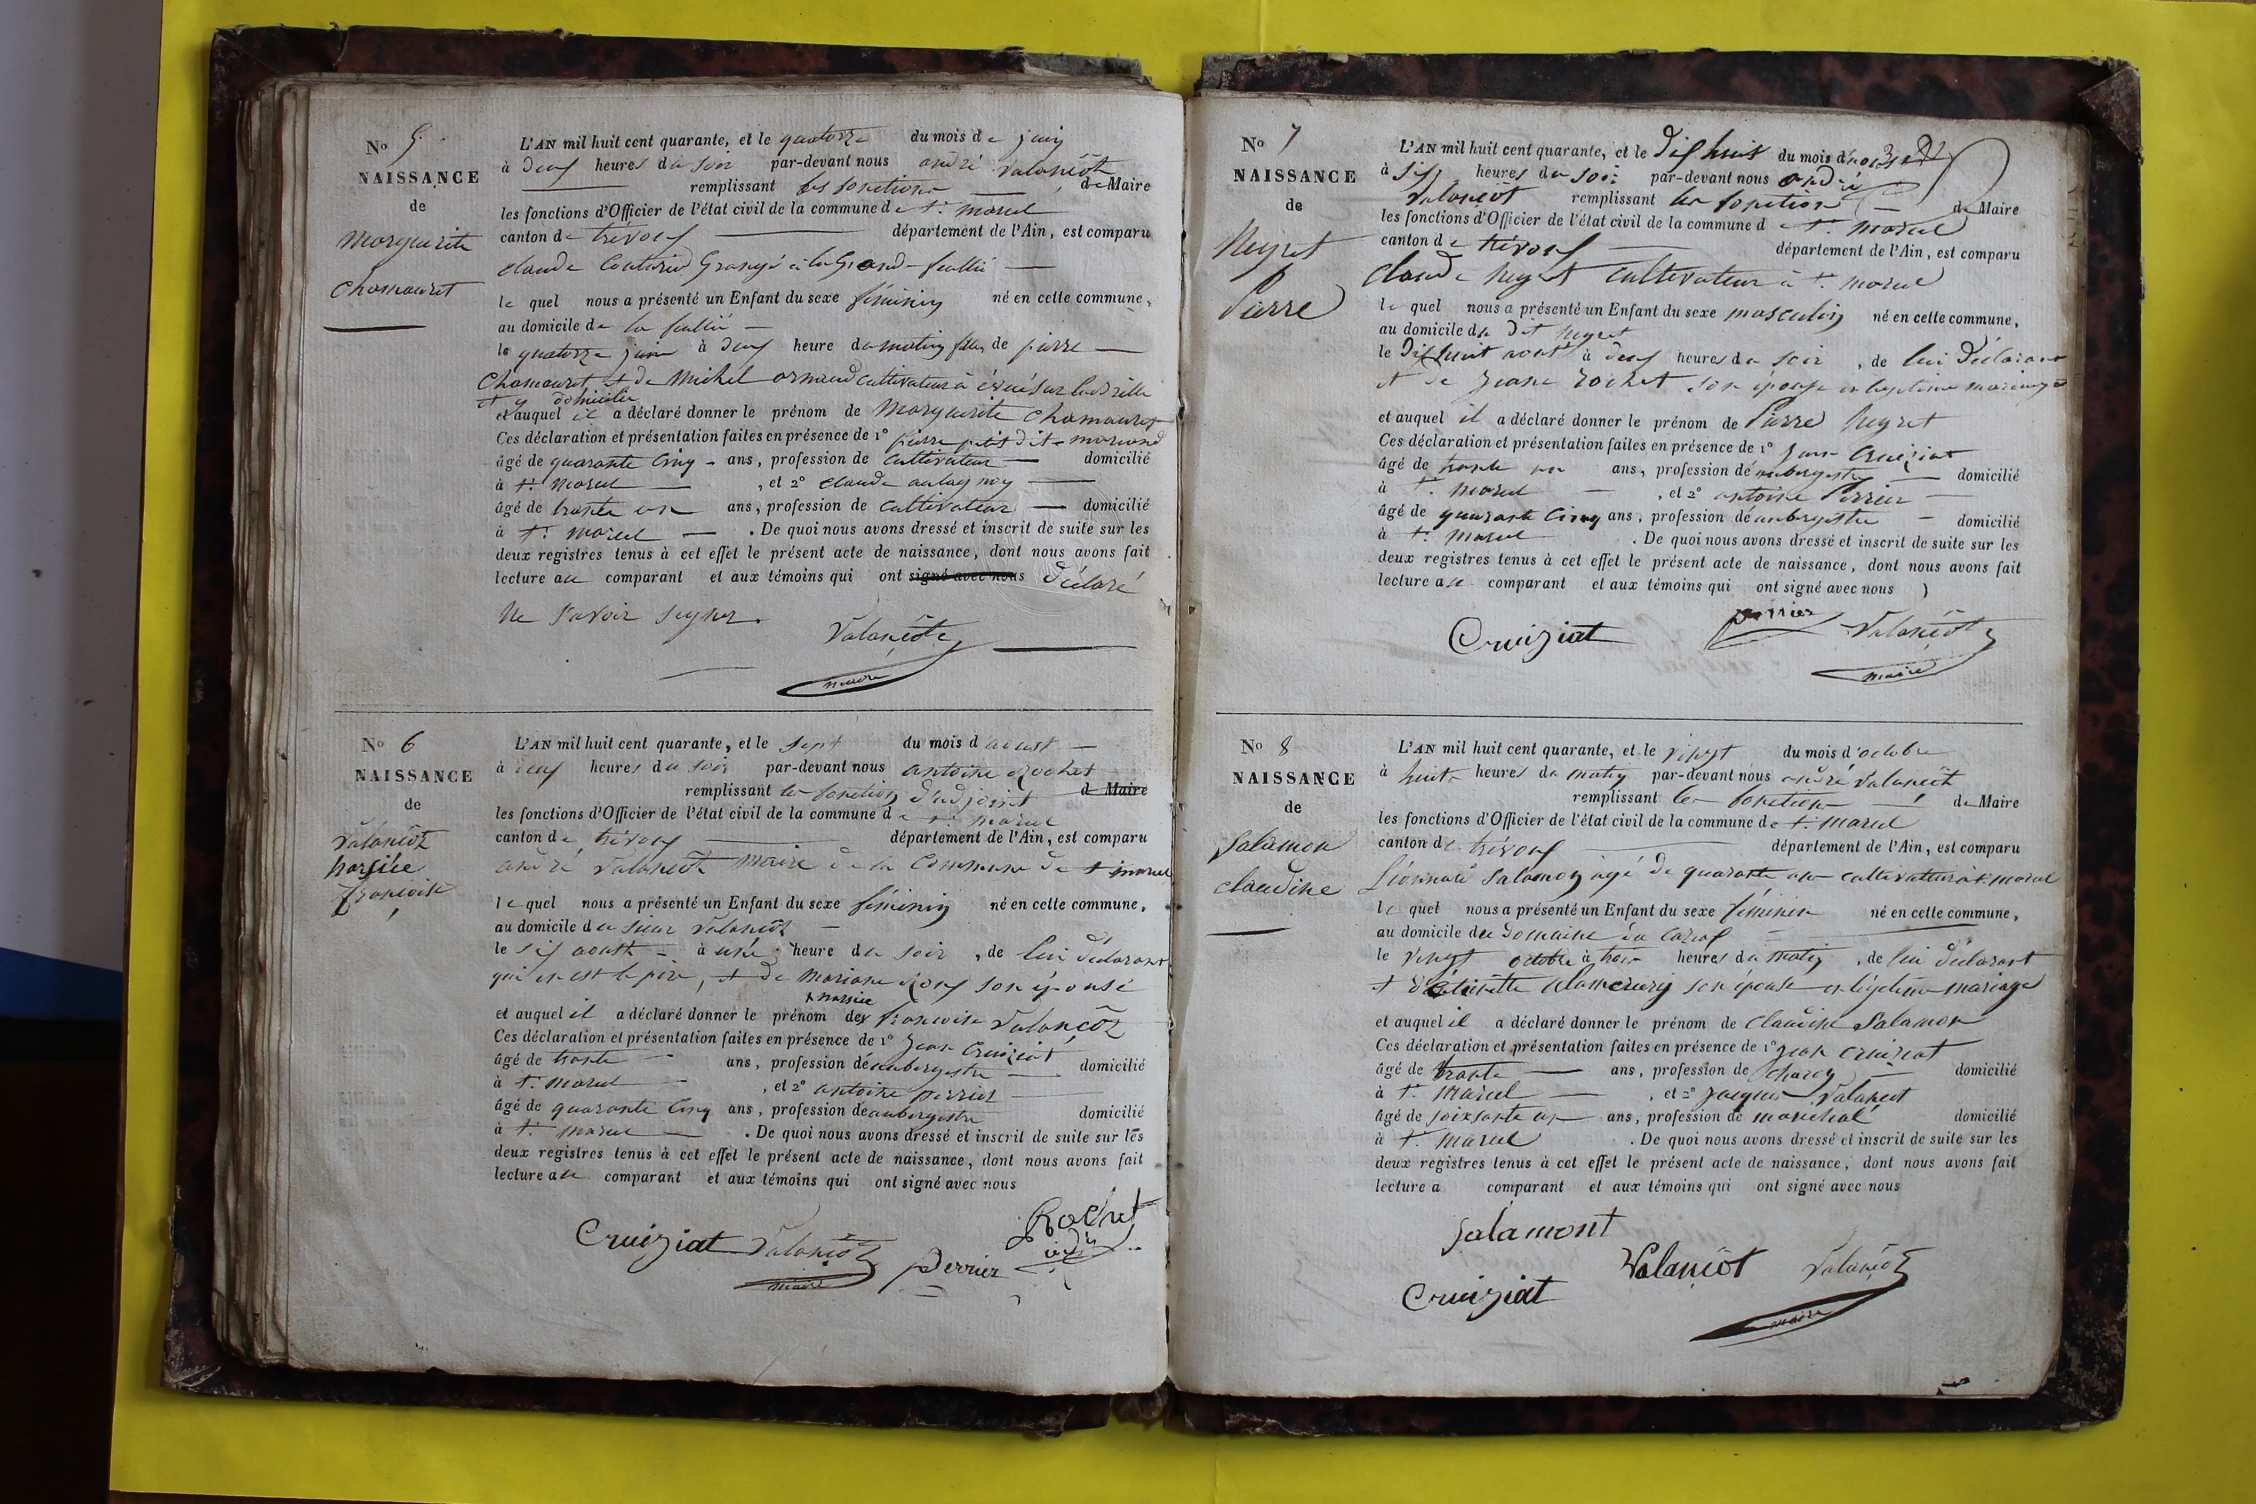 No 5
NAISSANCE
de
Marguerite
Chamauret
L'AN mil huit cent quarante, et le quatorze du mois de juin
à deux heures du soir par-devant nous andré Valançôt
remplissant les fonctions de Maire
les fonctions d'Officier de l'état civil de la commune de St. marcel
canton de trévoux département de l'Ain, est comparu
claude Couturier Grangé à la Grand-
le quel nous a présenté un Enfant du sexe féminin né en cette commune,
au domicile de la
le quatorze juin à deux heure du matin fille de pierre
Chamauret et de Michel armand cultivateur à
et y domicilié
et auquel il a déclaré donner le prénom de Marguerite Chamauret
Ces déclaration et présentation faites en présence de 1° pierre petit dit morand
âgé de quarante Cinq ans, profession de Cultivateur domicilié
à St. Marcel, et 2° claude
âgé de trante un ans, profession de Cultivateur domicilié
à St. Marcel. De quoi nous avons dressé et inscrit de suite sur les
deux registres tenus à cet effet le présent acte de naissance, dont nous avons fait
lecture au comparant et aux témoins qui ont signé avec nous déclaré
Ne savoir signer.
Valançôt
maire
No 6
NAISSANCE
de
Valançôt
narsice
francoise
L'AN mil huit cent quarante, et le sept du mois d'aoust
à deux heures du soir par-devant nous antoine Rochet
remplissant les fonction d'adjoint d Maire
les fonctions d'Officier de l'état civil de la commune de St. marcel
canton de trévoux département de l'Ain, est comparu
andré Valançôt Maire de la Commune de St marcel
le quel nous a présenté un Enfant du sexe féminin né en cette commune,
au domicile du sieur Valançôt
le six aoust à une heure du soir, de lui déclarant
qui en est le père, et de Mariane Roux son épouse
narsice
et auquel il a déclaré donner le prénom de francoise Valançôt
Ces déclaration et présentation faites en présence de 1° Jean Cruiziat
âgé de trante ans, profession de aubergiste domicilié
à St. Marcel, et 2° antoine perrier
âgé de quarante Cinq ans, profession de aubergiste domicilié
à St. marcel. De quoi nous avons dressé et inscrit de suite sur les
deux registres tenus à cet effet le présent acte de naissance, dont nous avons fait
lecture au comparant et aux témoins qui ont signé avec nous
Rochet
Cruiziat Valançôt perrier
maire
No 7
NAISSANCE
de
Neyret
Pierre
L'AN mil huit cent quarante, et le dix huit du mois d'
à six heures du soir par-devant nous andré
Valançôt remplissant les fonction de Maire
les fonctions d'Officier de l'état civil de la commune d St. marcel
canton de trévoux département de l'Ain, est comparu
Claude Neyret Cultivateur à St. marcel
le quel nous a présenté un Enfant du sexe masculin né en cette commune,
au domicile du dit Neyret
le dix huit aoust à deux heures du soir, de lui déclarant
et de Jeane Rochet son épouse en legitime mariage
et auquel il a déclaré donner le prénom de Pierre Neyret
Ces déclaration et présentation faites en présence de 1° Jean Cruiziat
âgé de trante un ans, profession de aubergiste domicilié
à St. marcel, et 2° antoine Perrier
âgé de quarante Cinq ans, profession de aubergiste domicilié
à St. marcel. De quoi nous avons dressé et inscrit de suite sur les
deux registres tenus à cet effet le présent acte de naissance, dont nous avons fait
lecture au comparant et aux témoins qui ont signé avec nous
perrier
Cruiziat Valançôt
maire
No 8
NAISSANCE
de
Salamon
claudine
L'AN mil huit cent quarante, et le vingt du mois d'octobre
à huit heures du matin par-devant nous andré Valançôt
remplissant les fonction de Maire
les fonctions d'Officier de l'état civil de la commune de St. marcel
canton de trévoux département de l'Ain, est comparu
Léonnard Salamon agé de quarante un cultivateur a St. marcel
le quel nous a présenté un Enfant du sexe féminin né en cette commune,
au domicile du Domaine
le vingt octobre à trois heures du matin, de lui déclarant
et son épouse en légitime mariage
et auquel il a déclaré donner le prénom de Claudine Salamon
Ces déclaration et présentation faites en présence de 1° Jean Cruiziat
âgé de trante ans, profession de charon domicilié
à St. Marcel, et 2° Jacques Valançot
âgé de soixsante un ans, profession de maréchal domicilié
à St. Marcel. De quoi nous avons dressé et inscrit de suite sur les
deux registres tenus à cet effet le présent acte de naissance, dont nous avons fait
lecture a comparant et aux témoins qui ont signé avec nous
Salamont
Valançôt Valançôt
Cruiziat
maire